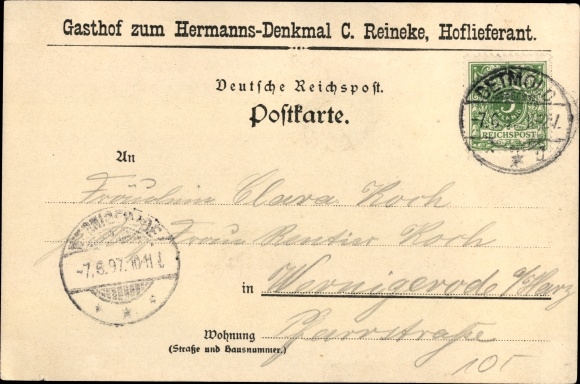 Gasthof zum Hermanns-Denkmal C. Reineke, Hoflieferant.
Deutsche Reichspost.
Postkarte.
DETMOLD
5
REICHSPOST
An
Fräulein Clara Koch
Frau Rentier Koch
WERNIGERODE
-7.6.97.10-11
in Wernigerode a/Harz
Wohnung Pfarrstraße
(Straße und Hausnummer.)
105